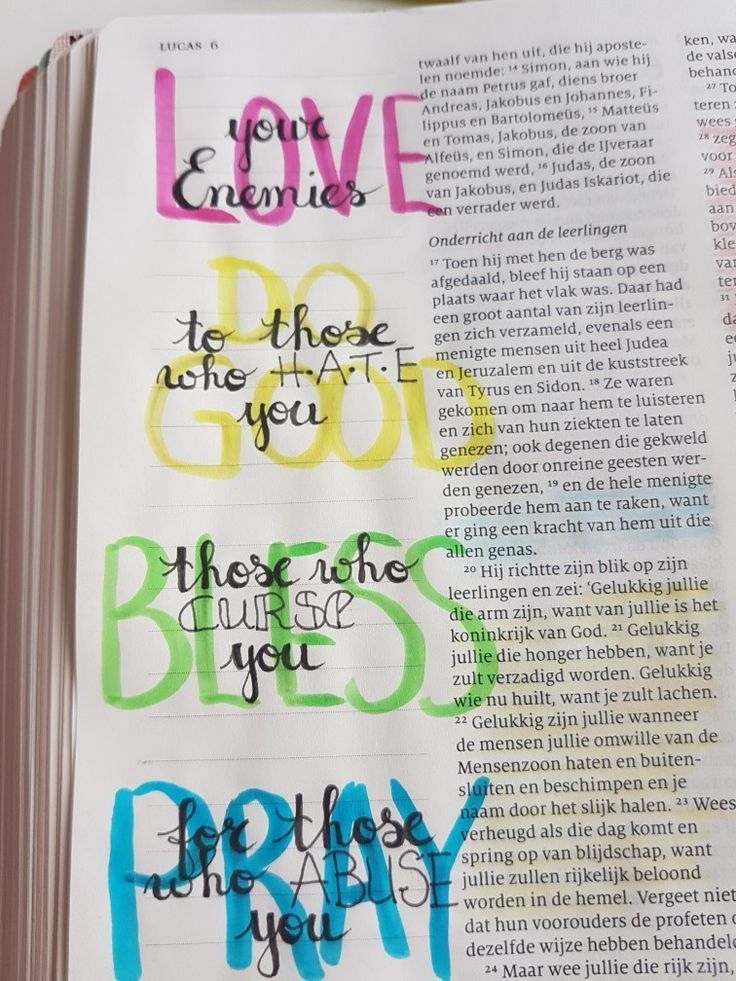 LUCAS 6
LOVE
your
Enemies
DO
to those
who H·A·T·E
GOOD
you
BLESS
those who
CURSE
you
PRAY
for those
who ABUSE
you
twaalf van hen uit, die hij aposte-
len noemde: 14 Simon, aan wie hij
de naam Petrus gaf, diens broer
Andreas, Jakobus en Johannes, Fi-
lippus en Bartolomeüs, 15 Matteüs
en Tomas, Jakobus, de zoon van
Alfeüs, en Simon, die de IJveraar
genoemd werd, 16 Judas, de zoon
van Jakobus, en Judas Iskariot, die
een verrader werd.
Onderricht aan de leerlingen
17 Toen hij met hen de berg was
afgedaald, bleef hij staan op een
plaats waar het vlak was. Daar had
een groot aantal van zijn leerlin-
gen zich verzameld, evenals een
menigte mensen uit heel Judea
en Jeruzalem en uit de kuststreek
van Tyrus en Sidon. 18 Ze waren
gekomen om naar hem te luisteren
en zich van hun ziekten te laten
genezen; ook degenen die gekweld
werden door onreine geesten wer-
den genezen, 19 en de hele menigte
probeerde hem aan te raken, want
er ging een kracht van hem uit die
allen genas.
20 Hij richtte zijn blik op zijn
leerlingen en zei: ‘Gelukkig jullie
die arm zijn, want van jullie is het
koninkrijk van God. 21 Gelukkig
jullie die honger hebben, want je
zult verzadigd worden. Gelukkig
wie nu huilt, want je zult lachen.
22 Gelukkig zijn jullie wanneer
de mensen jullie omwille van de
Mensenzoon haten en buiten-
sluiten en beschimpen en je
naam door het slijk halen. 23 Wees
verheugd als die dag komt en
spring op van blijdschap, want
jullie zullen rijkelijk beloond
worden in de hemel. Vergeet niet
dat hun voorouders de profeten
dezelfde wijze hebben behandel
24 Maar wee jullie die rijk zijn,
ken, wa
de vals
behand
27 To
teren
wees
28 zeg
voor
29 Al
bied
aan
bov
kle
van
ter
31